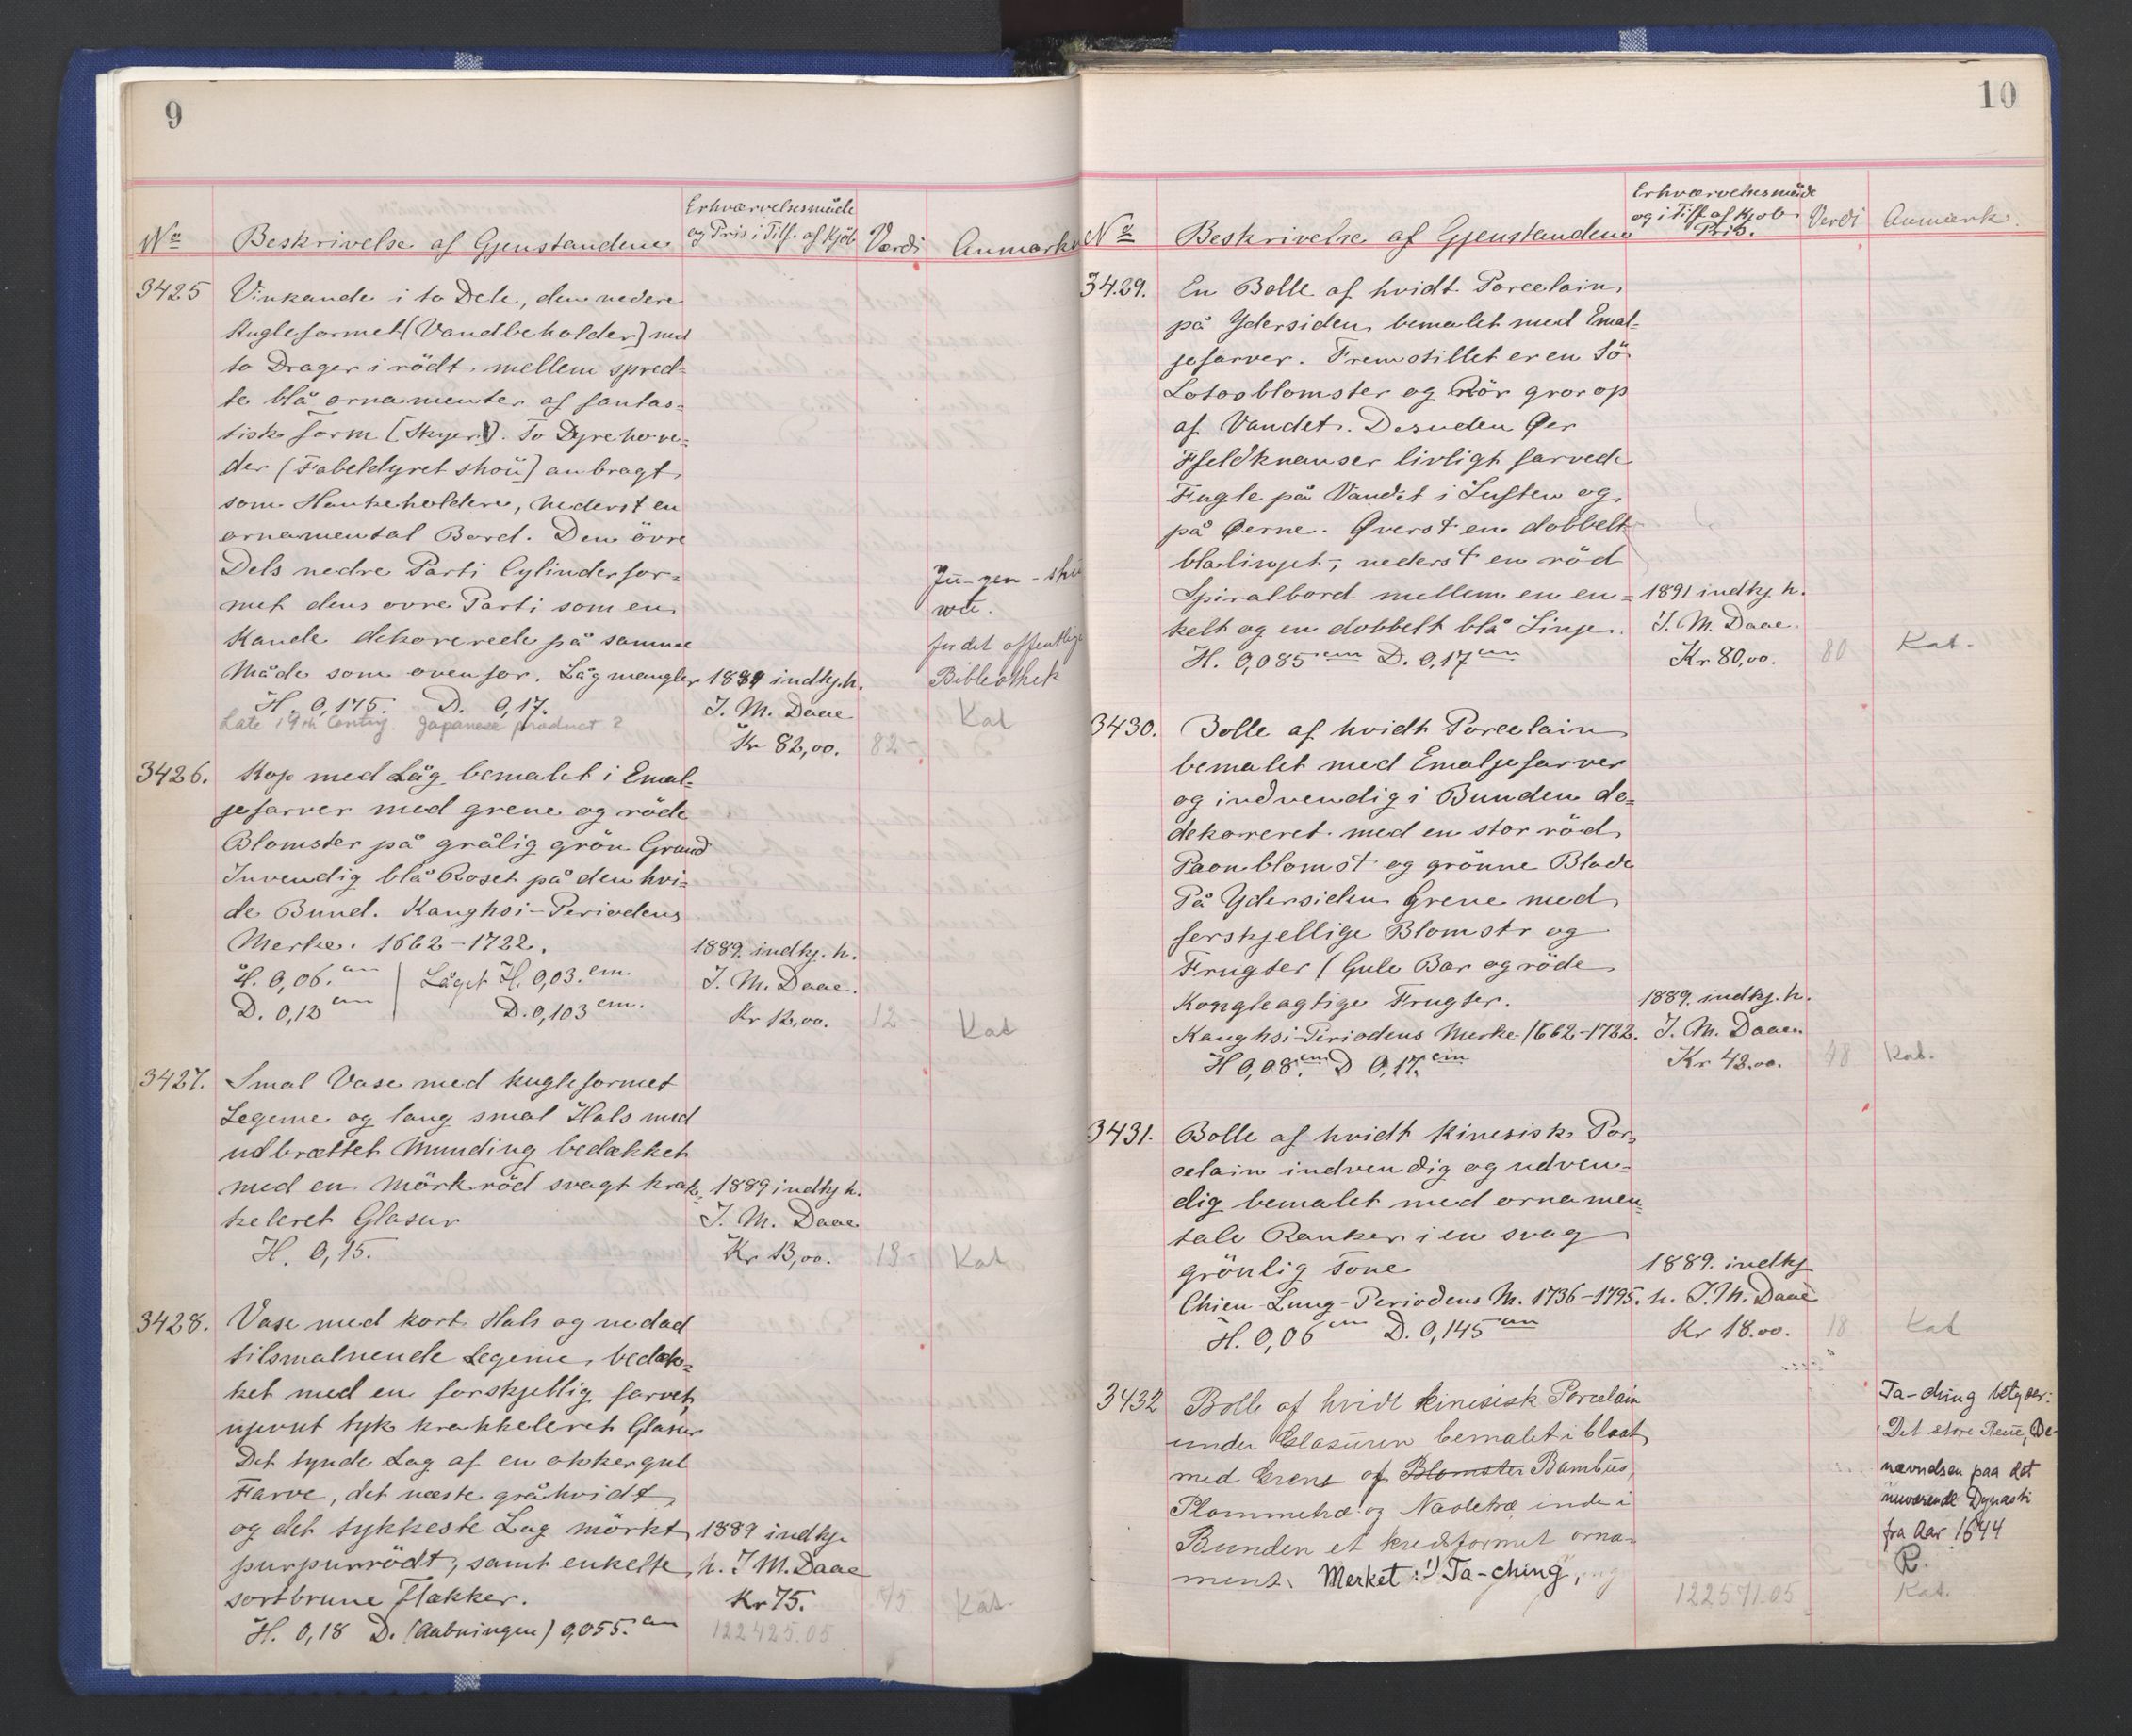 9
No
Beskrivelse af Gjenstandene
Erhværvelsesmåde
og Pris i Tilf. af Kjöb
Værdi
Anmærkn
3425
Vinkande i to Dele, den nedere
kugleformet (Vandbeholder) med
to Drager i rödt mellem spred-
te blå ornamenter af fantas-
tisk form (Skyer?). To Dyrehove-
der (Fabeldyret shoü) anbragt
som Hankeholdere, nederst en
ornamental Bord. Den övre
Dels nedre Parti Cylinderfor-
met dens ovre Parti som en
Kande dekorerede på samme
Måde som ovenfor. Låg mangler
H. 0,175. D. 0,17.
Late 19th Century. Japanese product?
1889 indkj. h.
J. M. Daae
Kr 82,00.
82-
Jü-gen-
for det offentlige
Bibliothek
Kat
3426.
Kop med Låg bemalet i Emal-
jefarver med grene og röde
Blomster på grålig grön Grund
Invendig blå Roset på den hvi-
de Bund. Kanghsi-Periodens
Merke. 1662-1722.
H. 0,06. cm Låget H. 0,03. cm.
D. 0,12 cm D. 0,103 cm.
1889. indkj. h.
J. M. Daae.
Kr 12,00.
12-
Kat
3427.
Smal Vase med kugleformet
Legeme og lang smal Hals med
udbrættet Munding bedækket
med en Mörk röd svagt krak-
keleret Glasur
H. 0,15.
1889 indkj h.
J. M. Daae
Kr 13,00.
13-
Kat
3428.
Vase med kort Hals og nedad
tilsmalnende Legeme, bedæk-
ket med en forskjellig farvet,
ujevnt tyk krakkeleret Glasur
Det tynde Lag af en okkergul
Farve, det næste gråhvidt,
og det tykkeste Lag mörkt
purpurrödt, samt enkelte
sortbrune Flakker.
H. 0,18 D. (Aabningen) 0,055. cm
1889 indkj.
h. J M. Daae
Kr 75.
75
Kat.
122425.05
10
No
Beskrivelse af Gjenstanden
Erhværvelsesmåde
og i Tilf. af Kjøb
Pris.
Verdi
Anmærk.
3429.
En Bolle af hvidt Porcelain
på Ydersiden bemalet med Emal-
jefarver. Fremstillet er en Sö
Lotosblomster og Rör gror op
af Vandet. Desuden Øer
Fjeldknauser livligt farvede
Fugle på Vandet i Luften og
på Øerne. Øverst en dobbelt
blålinje, nederst en röd
Spiralbord mellem en en-
kelt og en dobbelt blå Linje.
H. 0,085 cm D. 0,17 cm
1891 indkj. h.
J. M. Daae.
Kr 80,00.
80
Kat.
3430.
Bolle af hvidt Porcelain
bemalet med Emaljefarver
og indvendig i Bunden de-
dekoreret med en stor röd
Paonblomst og grönne Blade
På Ydersiden Grene med
forskjellige Blomstr og
Frugter (Gule Bær og röde
Kongleagtige Frugter.
Kanghsi-Periodens Merke 1662-1722.
H 0,08. cm D 0,17. cm
1889. indkj. h.
J. M. Daae.
Kr 48.00.
48
Kat.
3431.
Bolle af hvidt kinesisk Por-
celain indvendig og udven-
dig bemalet med ornamen-
tale Ranker i en svag
grönlig Tone
Chien-Lung-Periodens M. 1736-1795.
H. 0,06 cm D. 0,145 cm
1889. indkj
h. J. M. Daae
Kr 18.00.
18
Kat
3432
Bolle af hvidt kinesisk Porcelain
under Glasuren bemalet i blaat
med Grene af Blomster Bambus,
Plommetræ og Naaletræ inde i
Bunden et kredsformet orna-
ment. Merket: 1) Ta-ching,
122571.05
Ta-ching betyder:
Det store Rene, Be-
nævnelsen paa det
nuværende Dynasti
fra Aar 1644
R.
Kat.